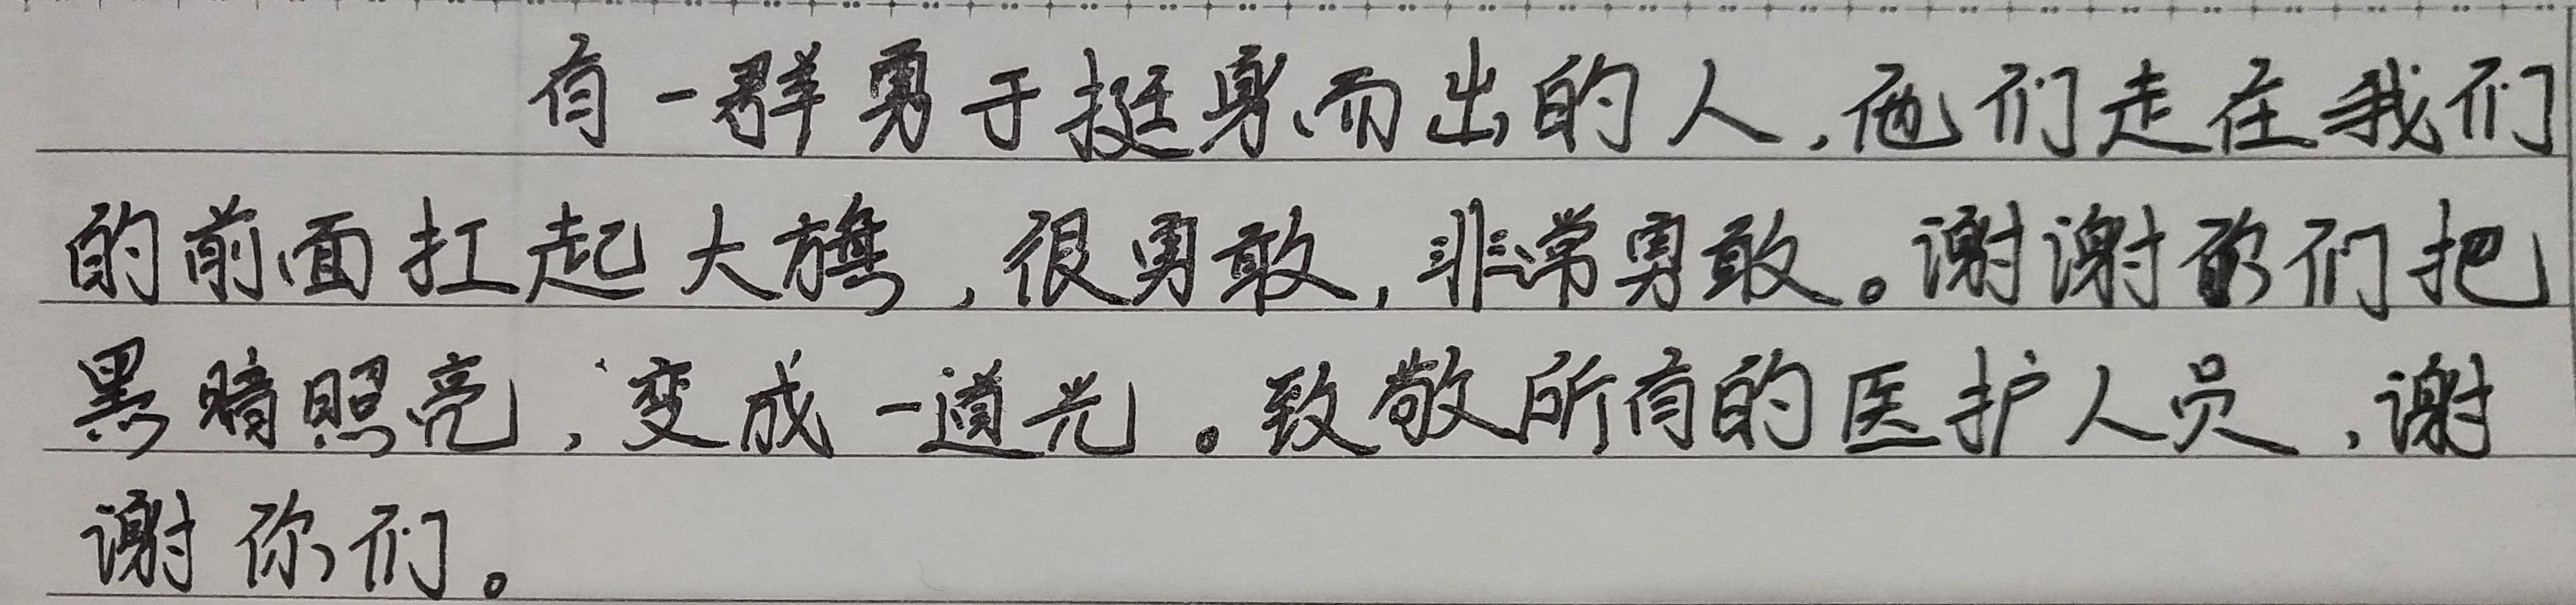 有一群勇于挺身而出的人,他们走在我们
的前面扛起大旗,很勇敢,非常勇敢。谢谢你们把
黑暗照亮,变成一道光。致敬所有的医护人员,谢
谢你们。